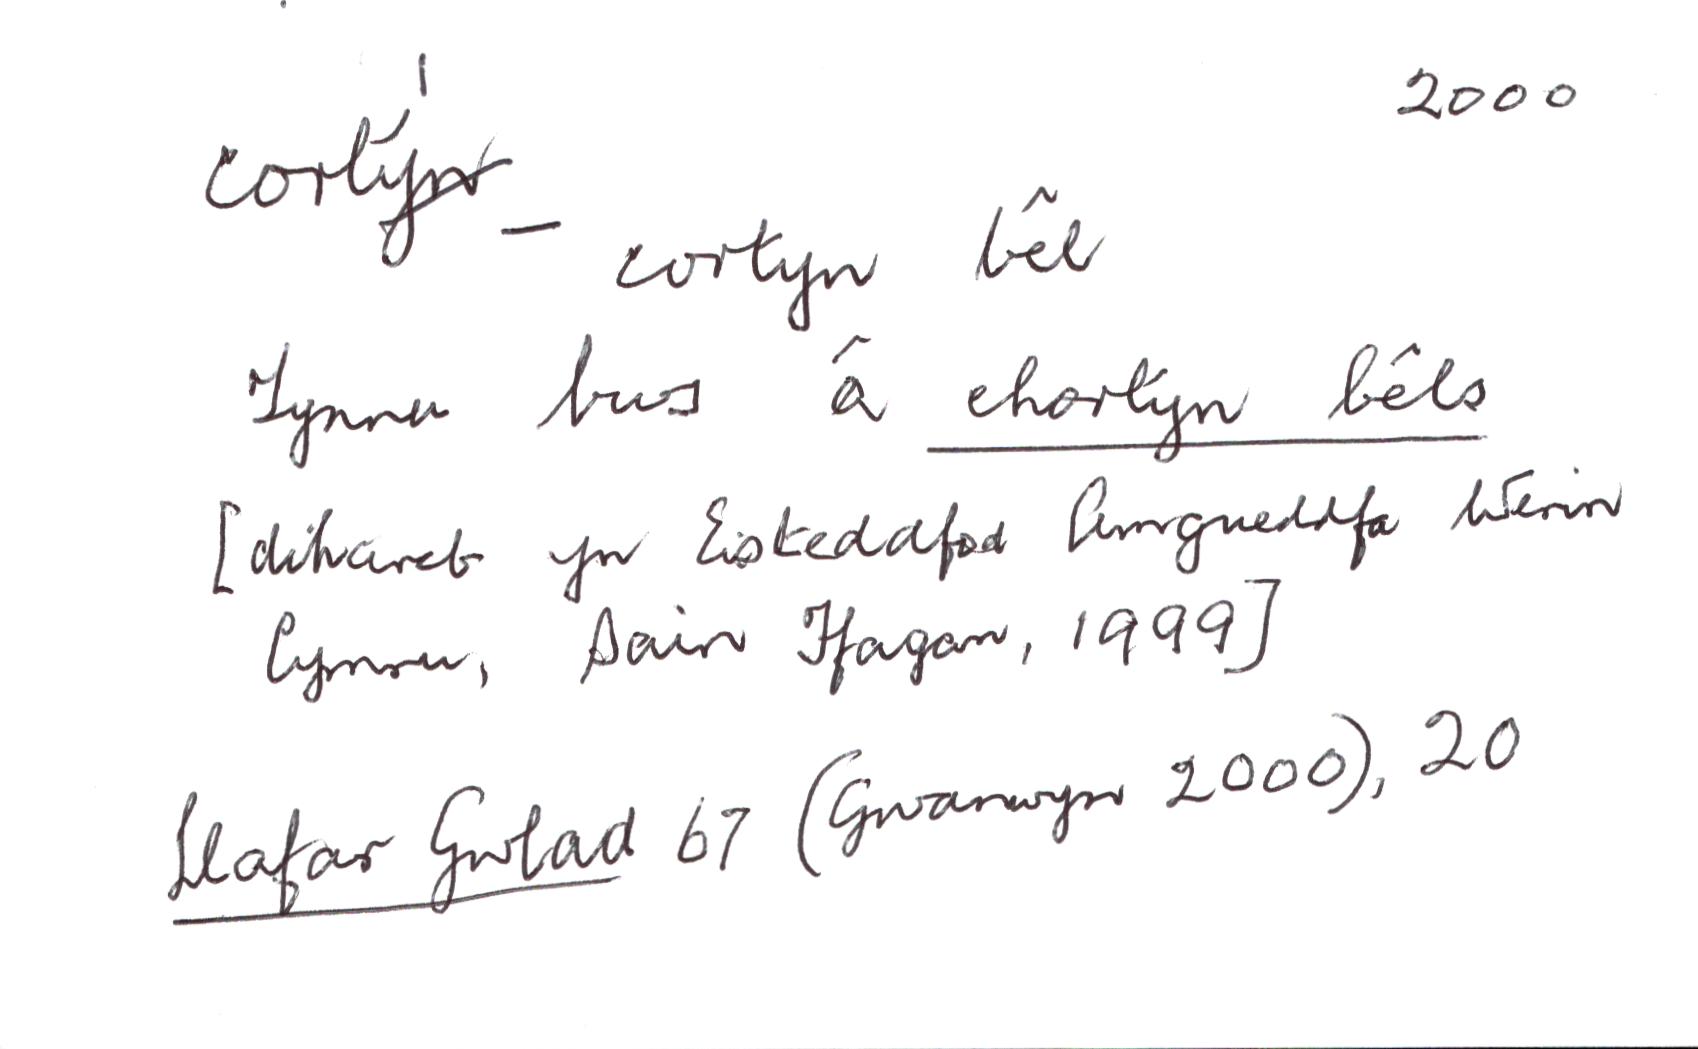 cortyn¹ 2000
– cortyn bêl
Tynnu bus â chortyn bêls
[dihareb yn Eisteddfod Amgueddfa Werin
Cymru, Sain Ffagan, 1999]
Llafar Gwlad 67 (Gwanwyn 2000), 20